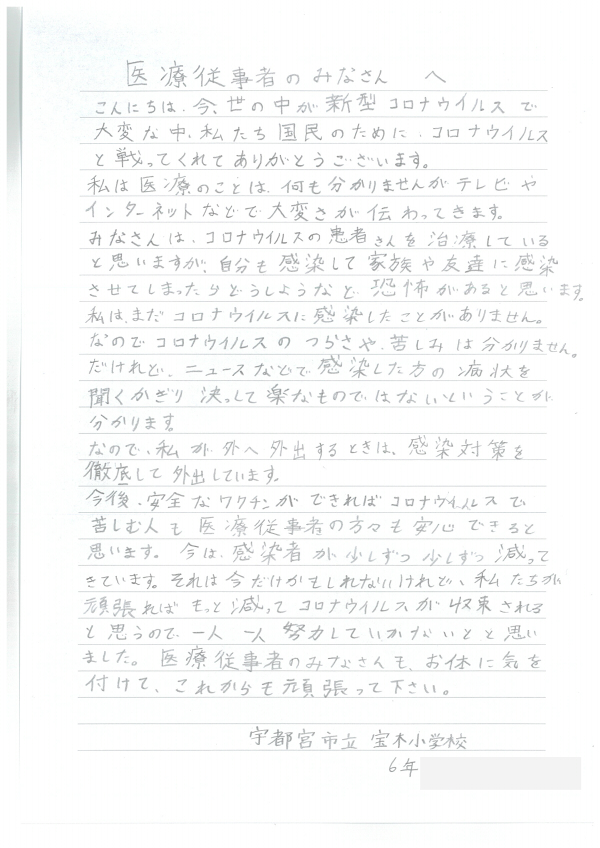 医療従事者のみなさん へ
こんにちは、今、世の中が新型コロナウイルスで
大変な中、私たち国民のために、コロナウイルス
と戦ってくれてありがとうございます。
私は医療のことは、何も分かりませんがテレビや
インターネットなどで大変さが伝わってきます。
みなさんは、コロナウイルスの患者さんを治療している
と思いますが、自分も感染して家族や友達に感染
させてしまったらどうしようなど、恐怖があると思います。
私は、まだコロナウイルスに感染したことがありません。
なのでコロナウイルスのつらさや、苦しみは分かりません。
だけれど、ニュースなどで感染した方の病状を
聞くかぎり決っして楽なものではないということが
分かります。
なので、私が外へ外出するときは、感染対策を
徹底して外出しています。
今後、安全なワクチンができればコロナウイルスで
苦しむ人も医療従事者の方々も安心できると
思います。今は、感染者が少しずつ少しずつ減って
きています。それは今だけかもしれないけれど、私たちが
頑張ればもっと減ってコロナウイルスが収束される
と思うので一人一人努力していかないとと思い
ました。医療従事者のみなさんも、お体に気を
付けて、これからも頑張って下さい。
宇都宮市立 宝木小学校
6年